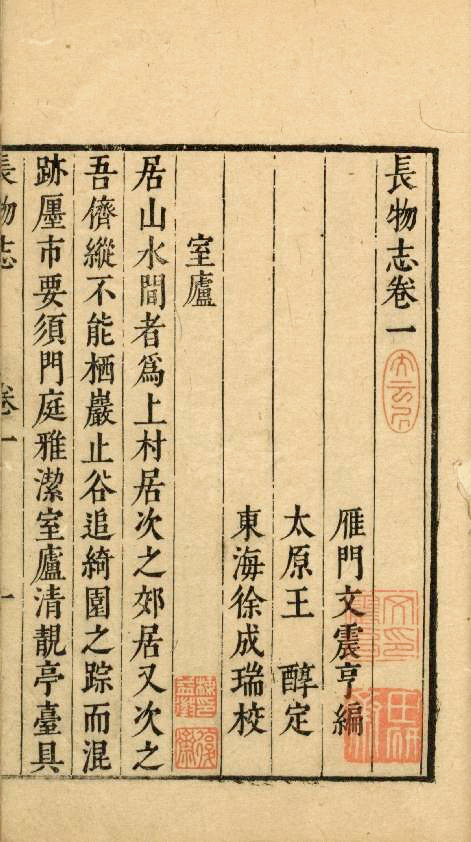 長物志卷一
雁門文震亨編
太原王　醇定
東海徐成瑞校
室廬
居山水間者為上村居次之郊居又次之
吾儕縱不能栖巖止谷追綺園之踪而混
跡廛市要須門庭雅潔室廬清靚亭臺具
長物志　卷一　一